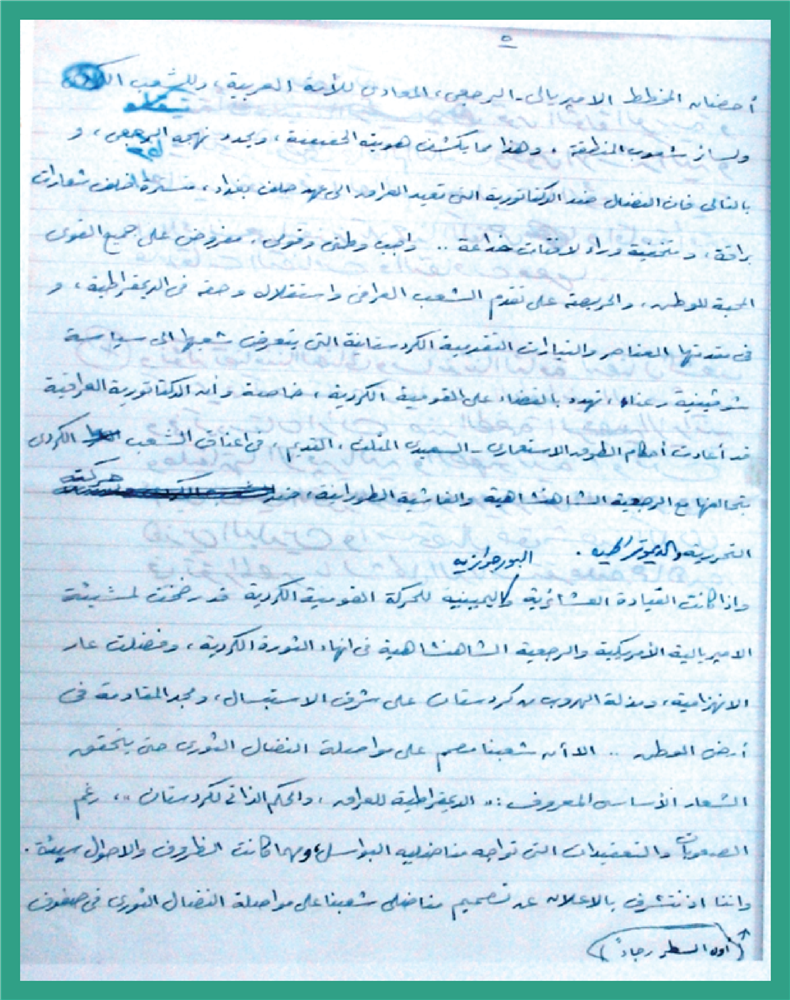 ٥
أحضان المخطط الامبريالي - الرجعي، المعادي للأمة العربية، وللشعب
ولسائر شعوب المنطقة، وهذا ما يكشف هويته الحقيقية، ويحدد نهجه الرجعي، و
بالتالي فان النضال ضد الدكتاتورية التي تعيد العراق الى عهد حلف بغداد، متسترة خلف شعارات
براقة، ومتخفية وراء لافتات خداعة .. واجب وطني وقومي، مفروض على جميع القوى
المحبة للوطن، والحريصة على تقدم الشعب العراقي واستقلاله وحقه في الديمقراطية، و
في مقدمتها العناصر والتيارات التقدمية الكردستانية التي يتعرض شعبها الى سياسة
شوفينية رعناء، تهدد بالقضاء على القومية الكردية، خاصة وأن الدكتاتورية العراقية
قد أعادت أحكام الطوق الاستعماري - السعيدي القديم، في اعناق الشعب الكردي
بتحالفها مع الرجعية الشاهنشاهية والفاشية الطورانية، ضد حركته
التحررية والديمقراطية.
البورجوازية
واذا كانت القيادة العشائرية واليمينية للحركة القومية الكردية قد رضخت لمشيئة
الامبريالية الأمريكية والرجعية الشاهنشاهية في انهاء الثورة الكردية، وفضلت عار
الانهزامية، ومذلة الهروب من كردستان على شرف الاستبسال، ومجد المقاومة في
أرض الوطن .. الا أن شعبنا مصمم على مواصلة النضال الثوري حتى يتحقق
الشعار الأساسي المعروف: «الديمقراطية للعراق، والحكم الذاتي لكردستان»، رغم
الصعوبات والتعقيدات التي تواجه مناضليه البواسل، ومهما كانت الظروف والاحوال سيئة.
واننا اذ نتشرف بالاعلان عن تصميم مناضلي شعبنا على مواصلة النضال الثوري في صفوف
(أول السطر رجاء)